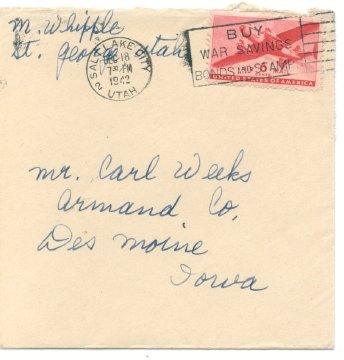 M. Whipple
St. George Utah
SALT LAKE CITY
DEC 18
7 PM
1942
UTAH
2
BUY
WAR SAVINGS
BONDS AND STAMPS
6
UNITED STATES OF AMERICA
Mr. Carl Weeks
Armand Co,
Des Moine
Iowa